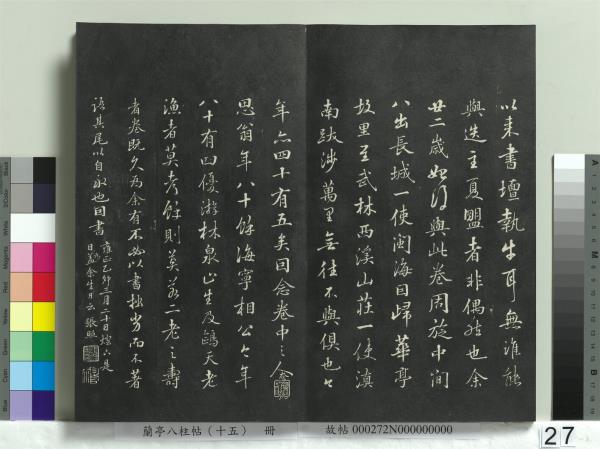 以来書壇執牛耳無誰能
與迭主夏盟者非偶然也余
廿二歲始得與此卷周旋中間
八出長城一使閩海目歸華亭
故里至武林西溪山莊一使滇
南跋涉萬里無往不與俱也今
年六四十有五矣因念卷中之人
思翁年八十餘海寧相公今年
八十有四優游林泉山生及鷗天老
漁者莫考餘則莫若二老之壽
者卷既久為余有不必以書拙劣而不著
語其尾以自外也因書
雍正乙卯三月二十日
日余生日云 張照
蘭亭八柱帖(十五) 冊
故帖 000272N000000000
27